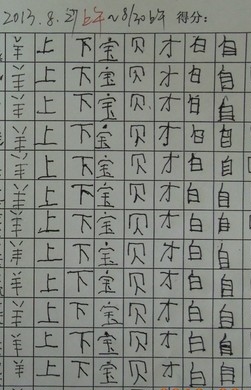 2013.8.27上午~8/30上午 得分:
羊上下宝贝才白自
羊上下宝贝才白自
羊上下宝贝才白自
羊上下宝贝才白自
羊上下宝贝才白自
羊上下宝贝才白自
羊上下宝贝才白自
羊上下宝贝才白自
羊上下宝贝才白自
羊上下宝贝才白自
羊上下宝贝才白自
羊上下宝贝才白自